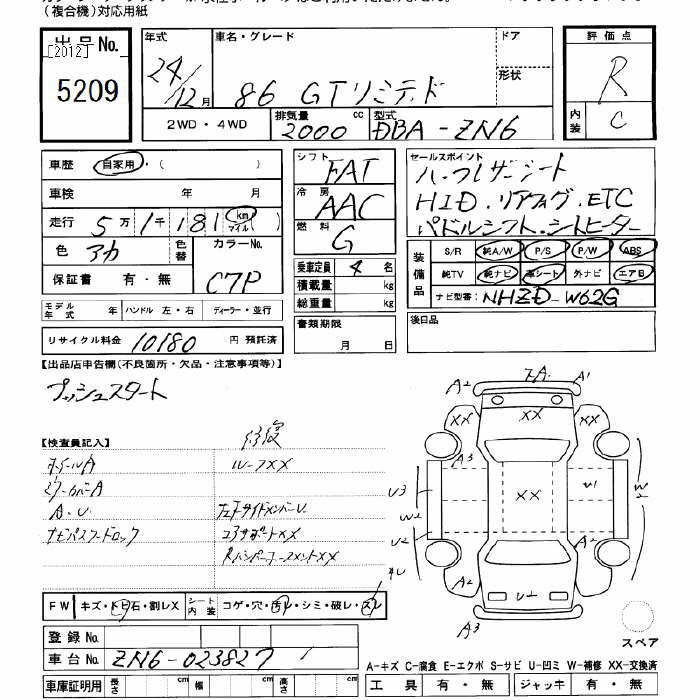 (複合機)対応用紙
出品 No.
[2012]
5209
年式
24/12月
車名・グレード
86 GTリミテッド
ドア
形状
2WD・4WD
排気量 2000 cc
型式 DBA-ZN6
評価点
R
内装 C
車歴 自家用・( )
車検 年 月
走行 5万1千181 km マイル ( )
色 アカ
色替
カラーNo. C7P
保証書 有・無
モデル年式 年
ハンドル 左・右
ディーラー・並行
リサイクル料金 10180 円 預託済
シフト FAT
冷房 AAC
燃料 G
乗車定員 4 名
積載量 kg
総重量 kg
書類期限
月 日
セールスポイント
ハーフレザーシート
HID.リアフォグ.ETC
パドルシフト.シートヒーター
装備品
S/R 純A/W P/S P/W ABS
純TV 純ナビ 革シート 外ナビ エアB
ナビ型番: NHZD-W62G
後日品
【出品店申告欄(不良箇所・欠品・注意事項等)】
プッシュスタート
【検査員記入】
修復
ホイールA
ルーフXX
ミラーカバーA
A.U
ナビパスワードロック
コアサポートXX
FW キズ・トビ石・割レX
シート内装 コゲ・穴・汚レ・シミ・破レ・スレ
登録 No.
車台 No. ZN6-023827
車庫証明用 長さ cm 幅 cm 高さ cm
A2
A1
XX
XX
XX
A3
U3
W2
U2
4U
XX
W1
W2
A2
A2
U2
A3
スペア
A-キズ C-腐食 E-エクボ S-サビ U-凹ミ W-補修 XX-交換済
工具 有・無
ジャッキ 有・無